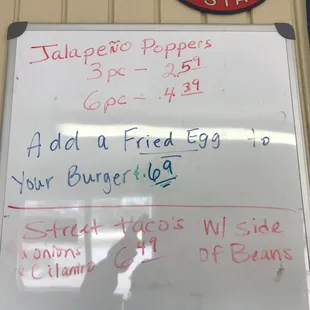 STA
Jalapeño Poppers
3pc - 2.59
6pc - 4.39
Add a Fried Egg to
Your Burger .69
Street taco's w/ side
onions
& Cilantro 6.49 of Beans